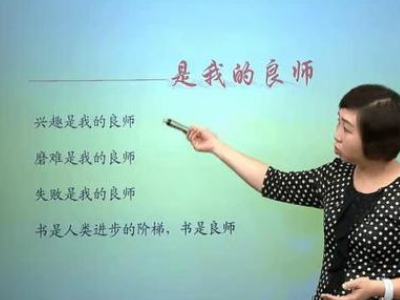 是我的良师
兴趣是我的良师
磨难是我的良师
失败是我的良师
书是人类进步的阶梯，书是良师